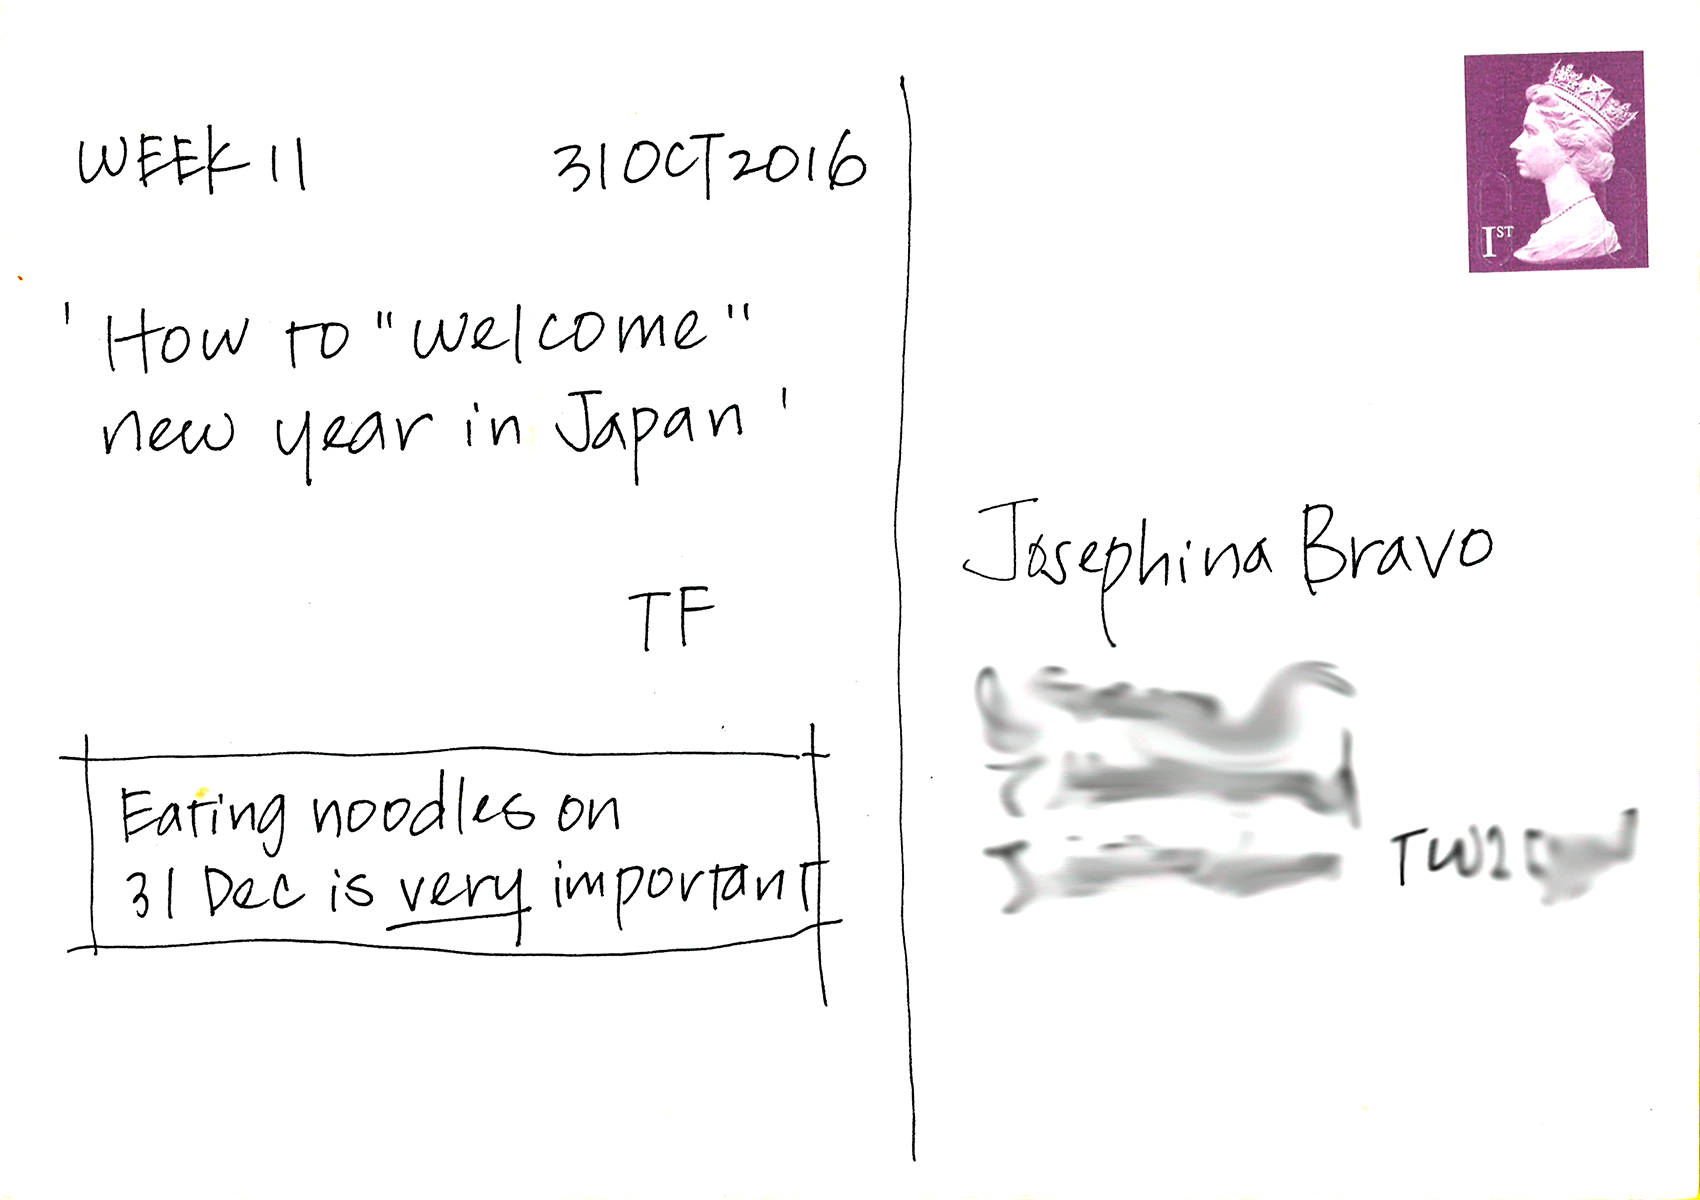 WEEK 11 31 OCT 2016
'How to "welcome"
new year in Japan'
TF
Eating noodles on
31 Dec is very important
1ST
Josephina Bravo
TW2